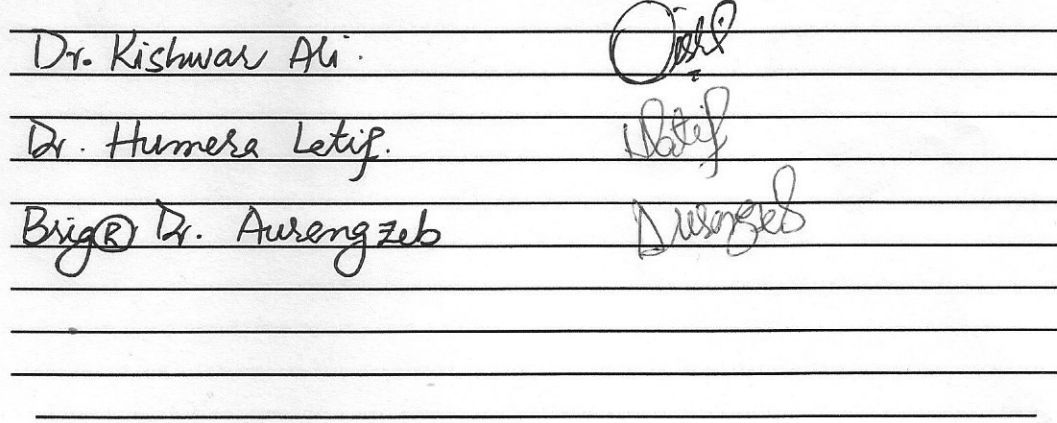 Dr. Kishwar Ali.
Dr. Humera Latif. Latif
Brig® Dr. Aurengzeb Aurengzeb